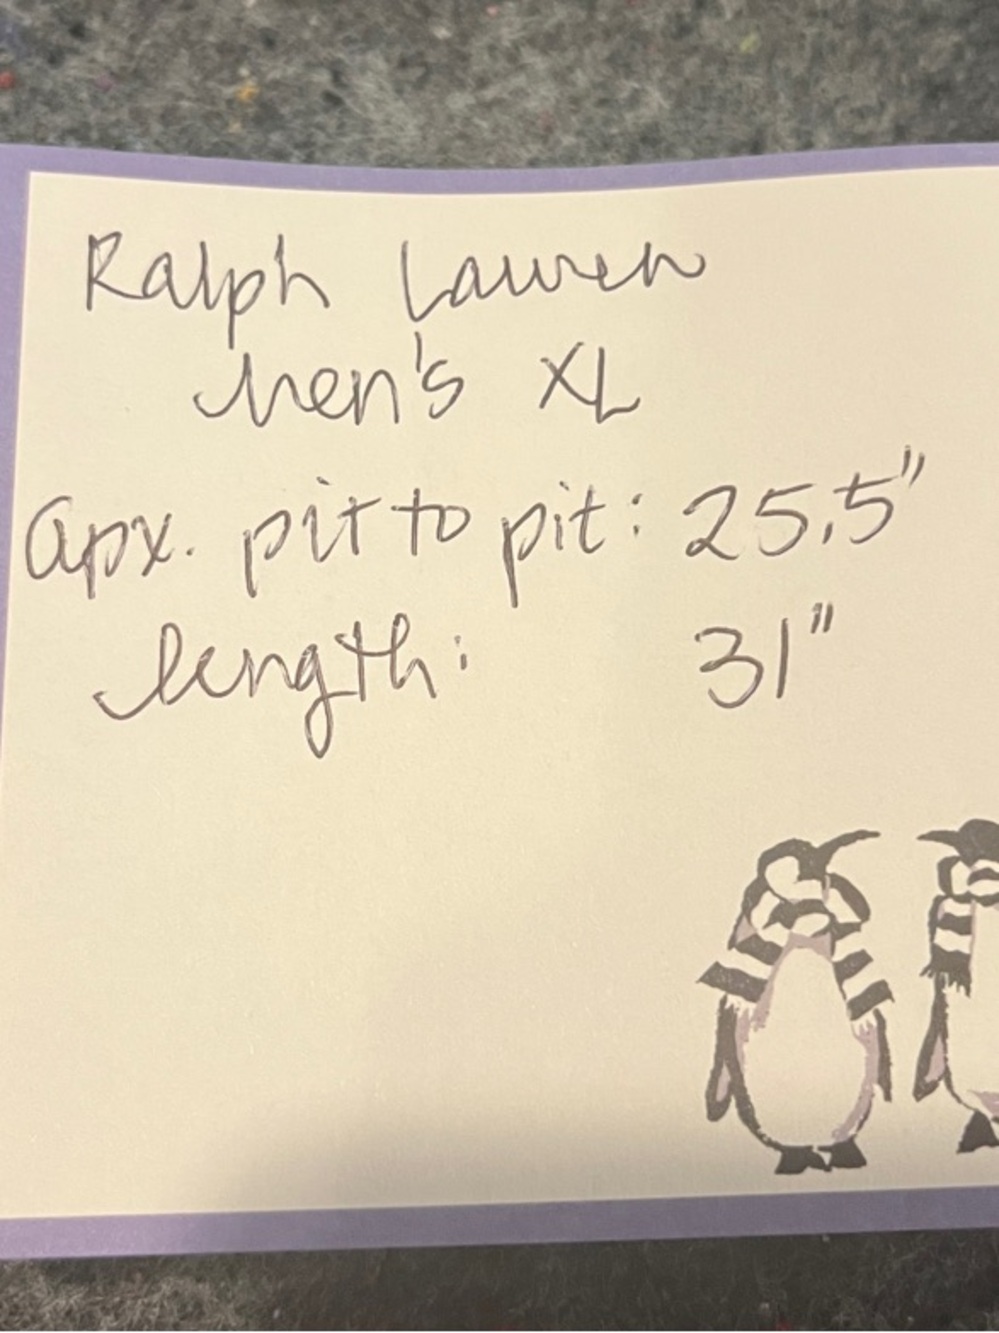 Ralph Lauren
Men's XL
apx. pit to pit: 25.5"
length: 31"